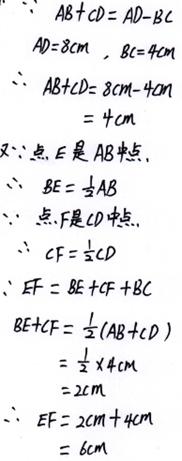 AB+CD=AD-BC
AD=8cm , BC=4cm
∴ AB+CD=8cm-4cm
=4cm
又∵点E是AB中点,
∴ BE=½AB
∵ 点F是CD中点,
∴ CF=½CD
∵ EF=BE+CF+BC
BE+CF=½(AB+CD)
=½×4cm
=2cm
∴ EF=2cm+4cm
=6cm